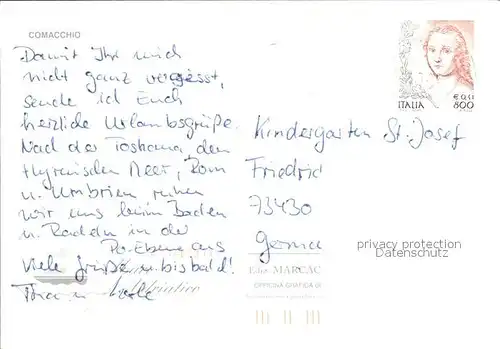 COMACCHIO
Damit Ihr mich
nicht ganz vergesst,
sende ich Euch
herzliche Urlaubsgrüße.
Nach der Toskana, dem
thyrrenischen Meer, Rom
u. Umbrien ruhen
wir uns beim Baden
u. Radeln in der
Po-Ebene aus
Viele Grüße u. bis bald!
ITALIA
€ 0,41
800
Kindergarten St. Josef
Friedrich
73430
privacy protection
Datenschutz
Ediz. MARCAC
OFFICINA GRAFICA DI